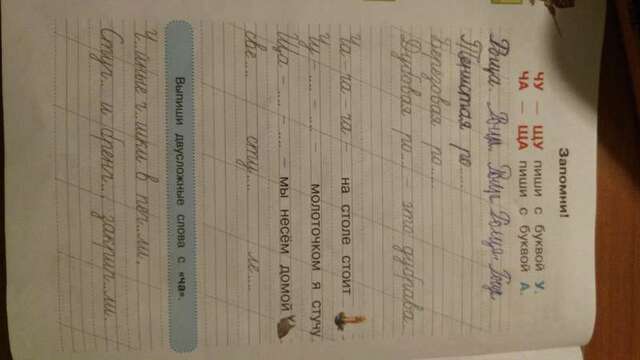 Запомни!
ЧУ — ЩУ пиши с буквой У.
ЧА — ЩА пиши с буквой А.
Роща. Роща. Роща. Роща. Роща
Тенистая ро.....
Берёзовая ро.....
Дубовая ро.... - это дубрава.
Ча - ча - ча - на столе стоит
Чу - ... - ... - молоточком я стучу.
Ща - ... - ... - мы несём домой
све.... сту.... ле....
Выпиши двусложные слова с «ча».
Ч...мные ч...шки в печ...ли.
Стуч... и бренч..., закрич...ли.